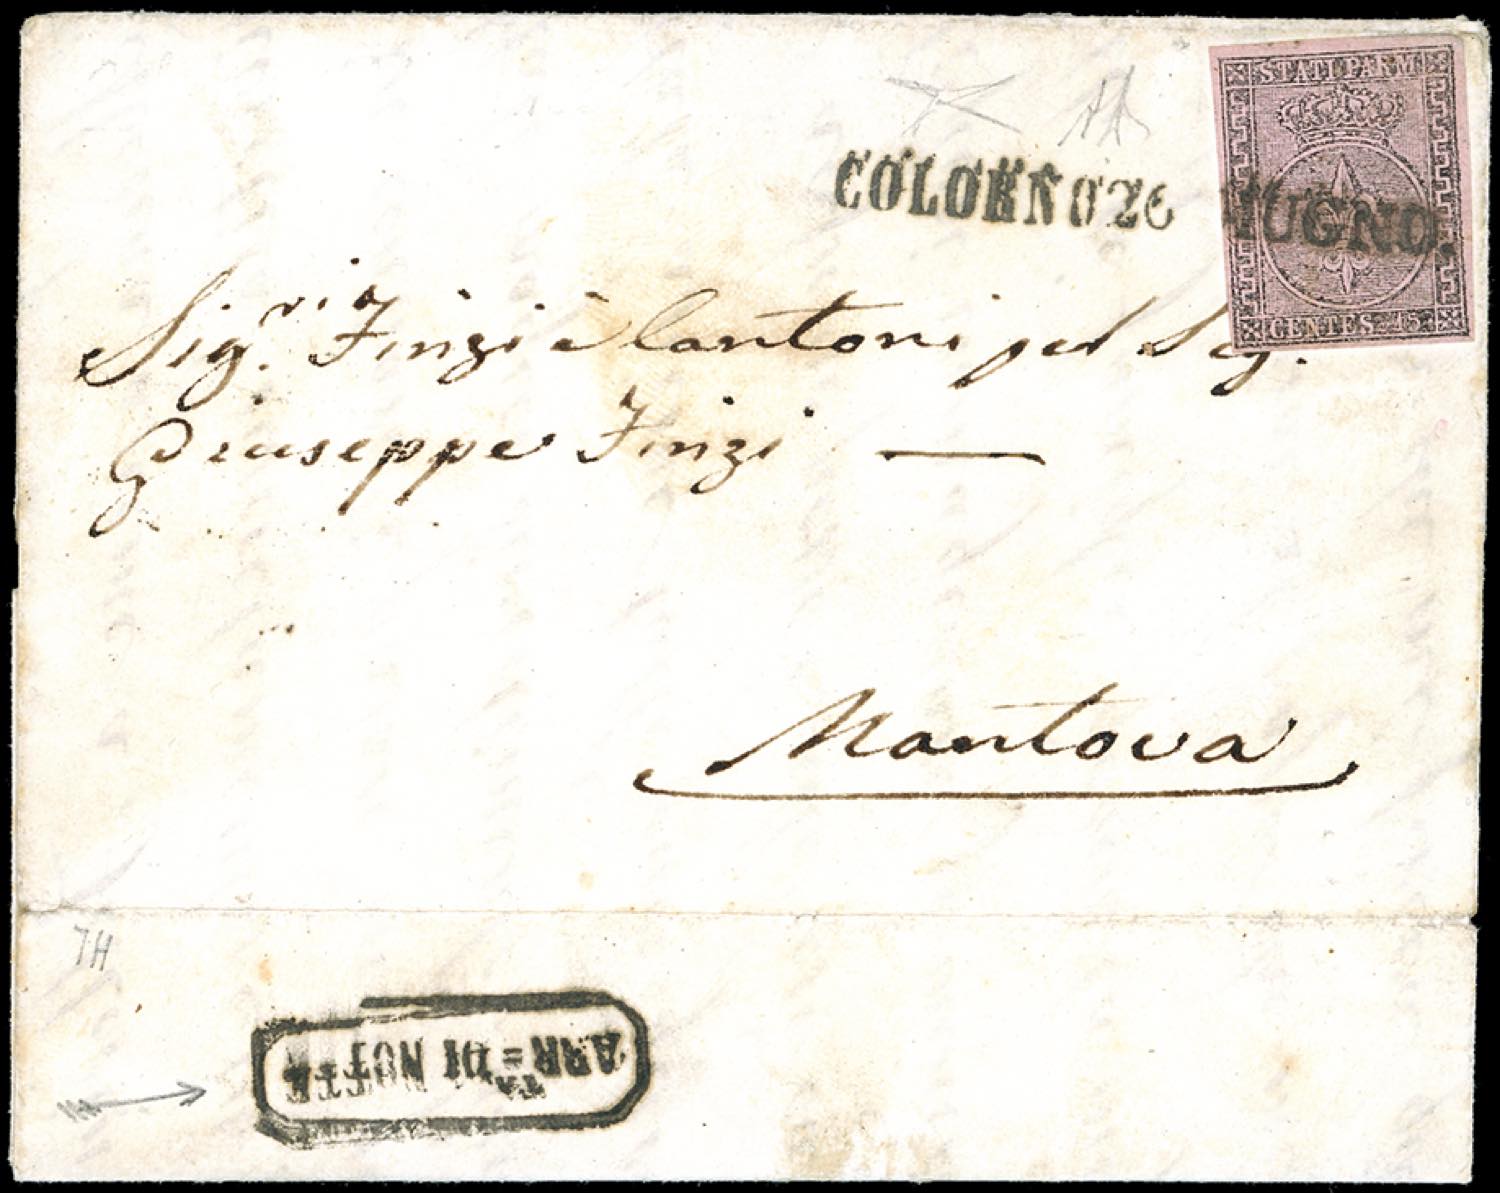 STATI PARM
COLORNO 26 GIUGNO.
CENTES. 15
Sig.ri Finzi e Cantoni per Sig.
Giuseppe Finzi —
Mantova
7H
ARR=TA DI NOTTE